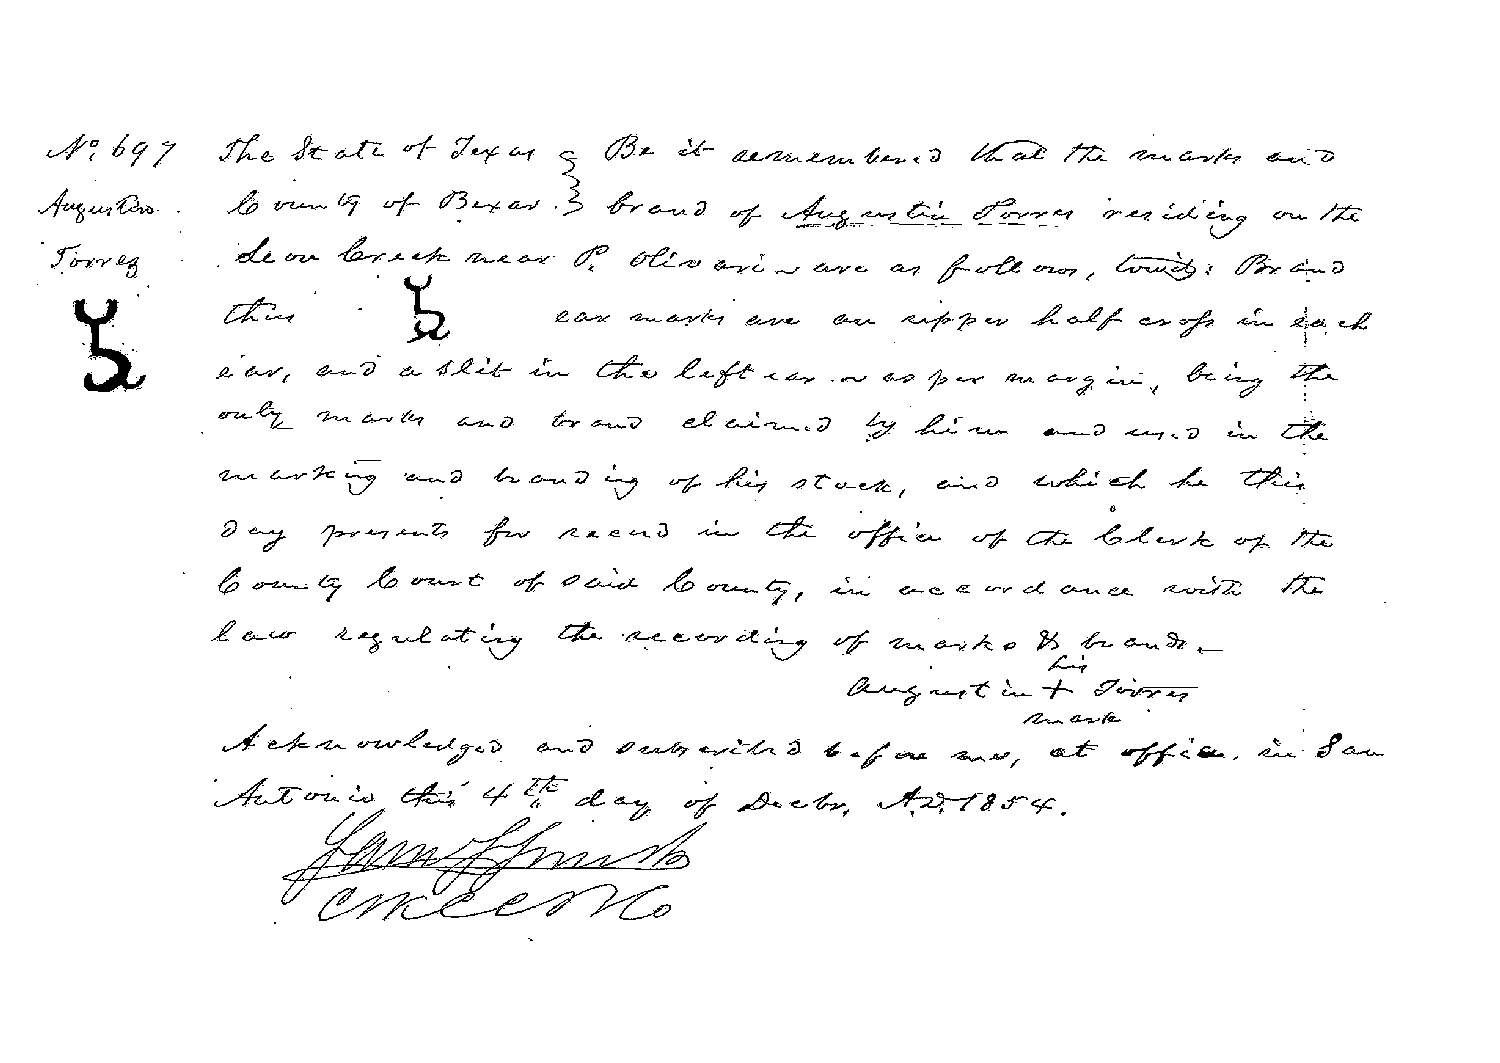 No. 697 The State of Texas } Be it remembered that the marks and
Augustin County of Bexar. } brand of Augustin Torres residing on the
Torrez Leon Creek near P. Olivari - are as follows, towit: Brand
thus ear marks are an upper half crop in each
ear, and a slit in the left ear as per margin, being the
only marks and brand claimed by him and used in the
marking and branding of his stock, and which he this
day presents for record in the office of the Clerk of the
County Court of said County, in accordance with the
law regulating the recording of marks & brands.
his
Augustin + Torres
mark
Acknowledged and subscribed before me, at office in San
Antonio this 4th day of Decbr, A.D. 1854.
Sam S Smith